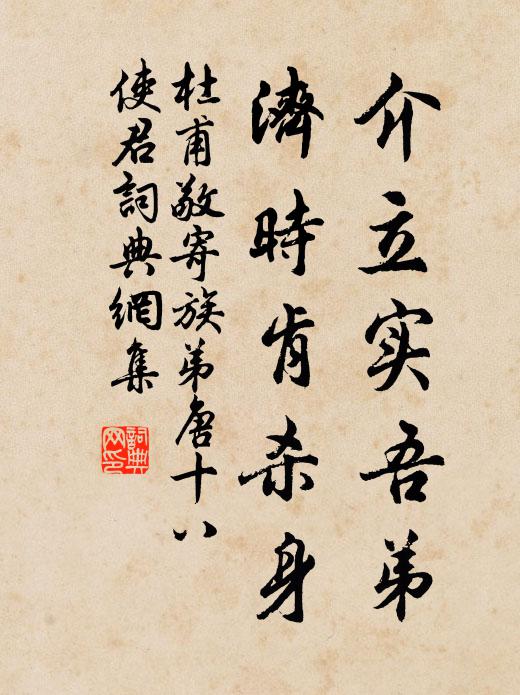 介立实吾弟
濟時肯杀身
杜甫敬寄族弟唐十八
使君詞典網集
詞典
网印